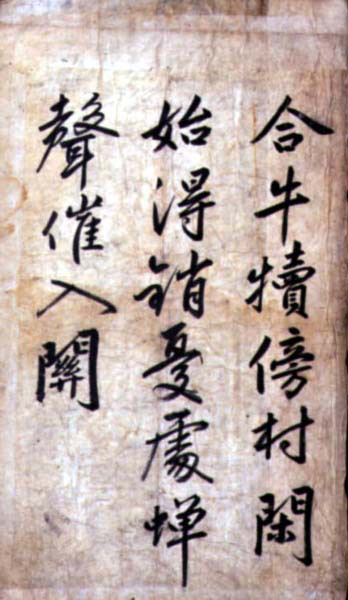 合牛犢傍村閑
始得銷憂處蟬
聲催入關